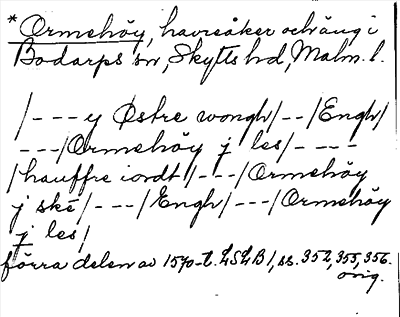 * Ormehöy, havreåker och äng i
Bodarps sn, Skytts hd, Malm. l.
/- - - y Østre wongh/- -/Engh/
- - -/Ormehöy j les/- - - -
/hauffre iordt/- - -/Ormehöy
j ske/- - -/Engh/- - -/Ormehöy
j les/
förra delen av 1570-t. LSLB 1, ss. 352, 355, 356.
orig.